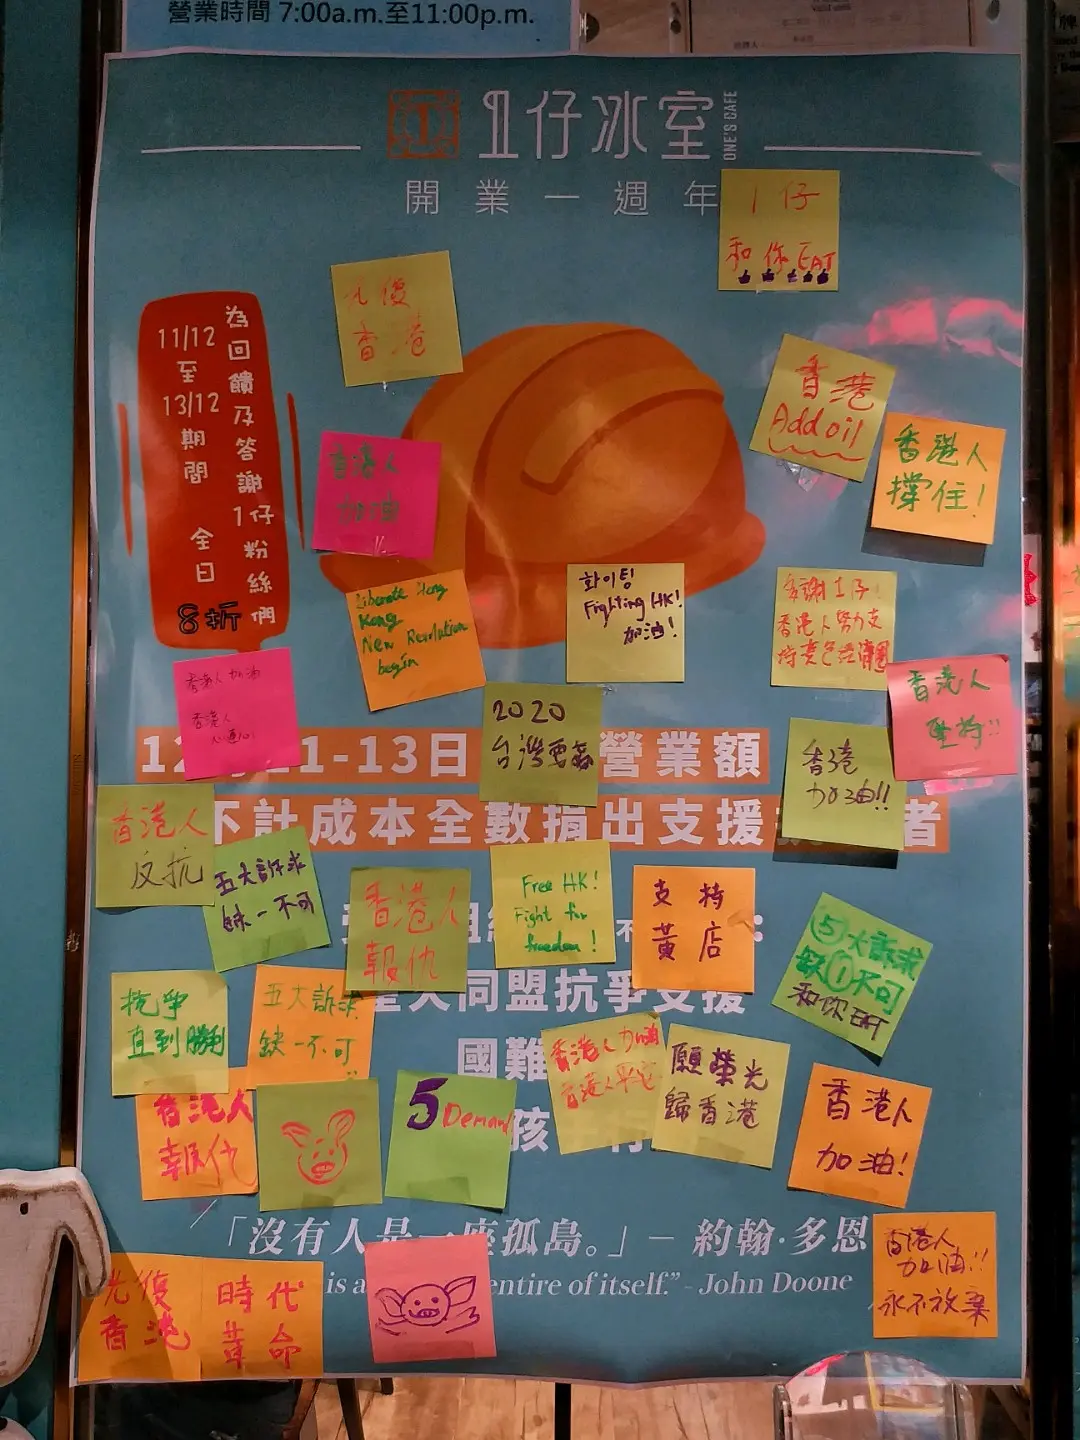 營業時間 7:00a.m.至11:00p.m.
1仔冰室
ONE'S CAFE
開業一週年
1仔
和你EAT
光復
香港
為回饋及答謝1仔粉絲們
11/12至13/12期間 全日8折
香港
Add oil
香港人
撐住!
香港人
加油
Liberate Hong
Kong
New Revolution
begin
화이팅
Fighting HK!
加油!
多謝1仔!
香港人努力支
持黃色經濟圈
香港人加油
香港人
心連心
香港人
堅持!!
2020
台灣要贏
香港
加油!!
11-13日
營業額
不計成本全數捐出支援
者
香港人
反抗
五大訴求
缺一不可
香港人
報仇
Free HK!
Fight for
freedom!
支持
黃店
⑤大訴求
缺①不可
和你EAT
抗爭
直到勝利
五大訴求
缺一不可
星火同盟抗爭支援
國難
孩
香港人加油
願榮光
歸香港
香港人
加油!
香港人
報仇
5 Demand
「沒有人是一座孤島。」— 約翰·多恩
is a
entire of itself." - John Doone
香港人
加油!!
永不放棄
光復
香港
時代
革命